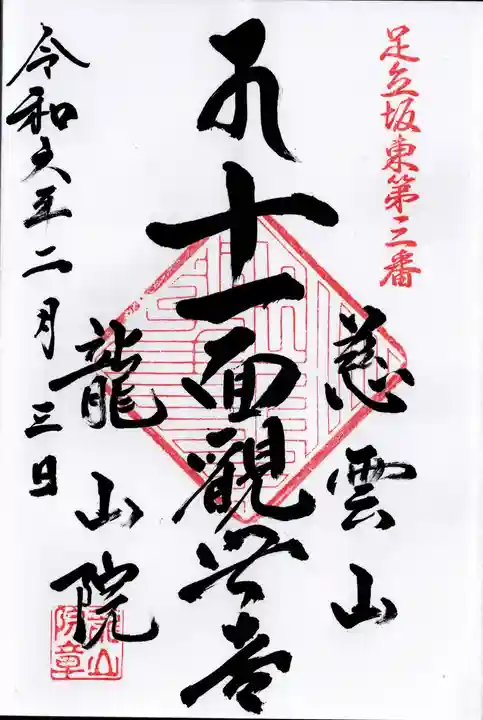 足立坂東第三番
慈雲山
十一面観世音
龍山院
令和六年二月三日
龍山院章